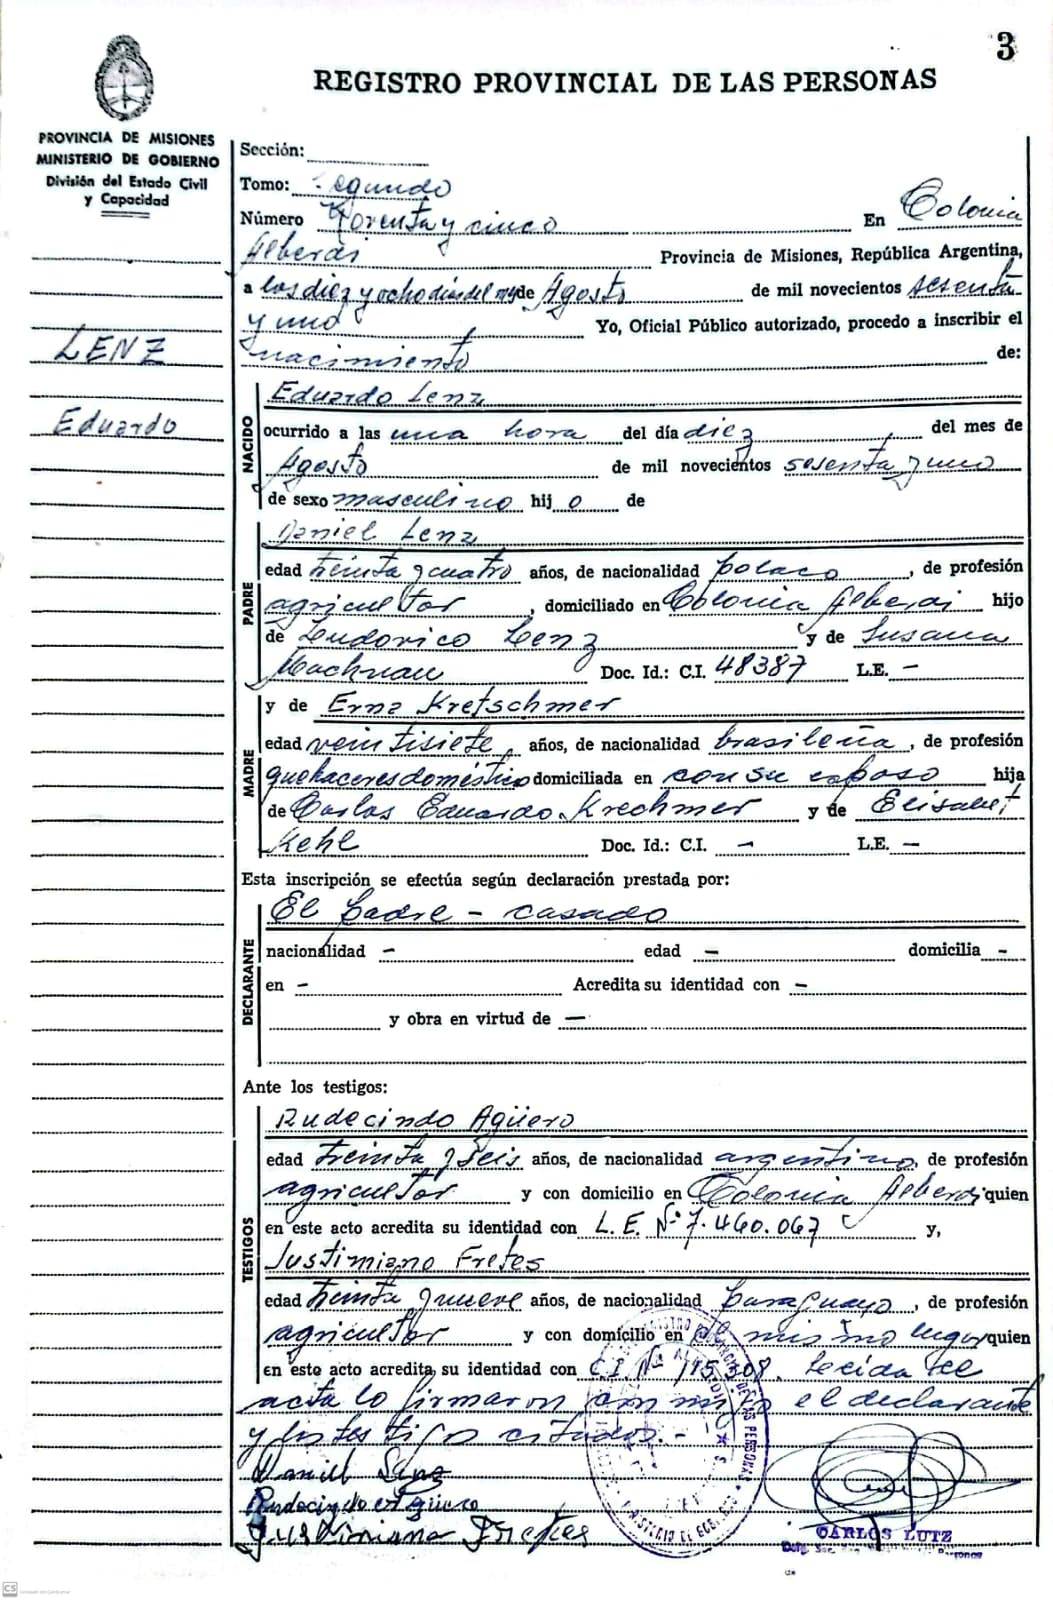 3
REGISTRO PROVINCIAL DE LAS PERSONAS
PROVINCIA DE MISIONES
MINISTERIO DE GOBIERNO
División del Estado Civil
y Capacidad
LENZ
Eduardo
Sección:
Tomo: Segundo
Número Korenta y cinco En Colonia
Alberdi Provincia de Misiones, República Argentina,
a los diez y ocho días del mes de Agosto de mil novecientos sesenta
y uno Yo, Oficial Público autorizado, procedo a inscribir el
nacimiento de:
NACIDO
Eduardo Lenz
ocurrido a las una hora del día diez del mes de
Agosto de mil novecientos sesenta y uno
de sexo masculino hij o de
PADRE
Daniel Lenz
edad treinta y cuatro años, de nacionalidad polaco, de profesión
agricultor, domiciliado en Colonia Alberdi hijo
de Ludovico Lenz y de Susana
Doc. Id.: C.I. 48387 L.E. —
MADRE
y de Erna Kretschmer
edad veintisiete, años, de nacionalidad brasileña, de profesión
quehaceres doméstico domiciliada en con su esposo hija
de Carlos Eduardo Krechmer y de Elisabet
Kehl Doc. Id.: C.I. — L.E. —
Esta inscripción se efectúa según declaración prestada por:
DECLARANTE
El padre - casado
nacionalidad — edad — domicilia —
en — Acredita su identidad con —
y obra en virtud de —
Ante los testigos:
TESTIGOS
Rudecindo Agüero
edad treinta y seis años, de nacionalidad argentino, de profesión
agricultor y con domicilio en Colonia Alberdi quien
en este acto acredita su identidad con L. E. Nº 7.460.067 y,
Justimiano Fretes
edad treinta y nueve años, de nacionalidad paraguayo, de profesión
agricultor y con domicilio en el mismo lugar quien
en este acto acredita su identidad con C.I. Nº 115308. Leída el
acta lo firmaron con migo el declarante
y los testigos citados.-
Daniel Lenz
Rudecindo Agüero
Justimiano Fretes
CARLOS LUTZ
CS